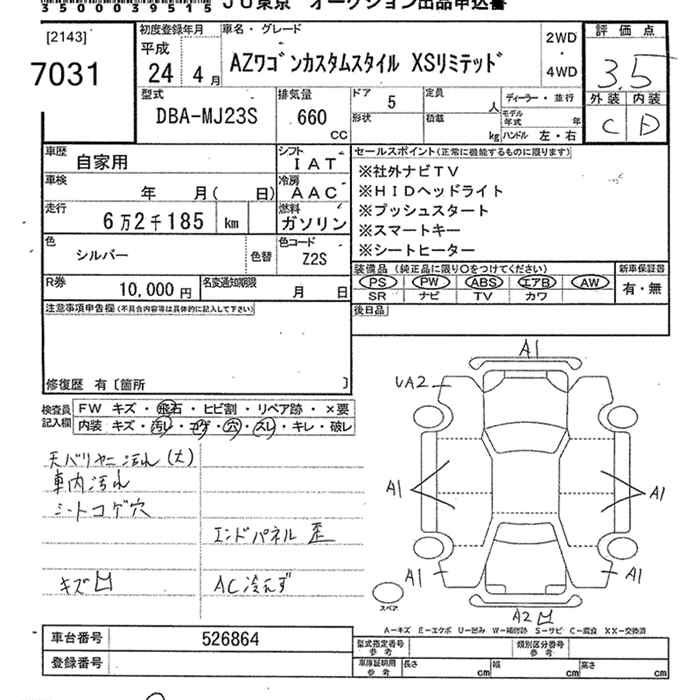 3500039515 JU東京 オークション出品申込書
[2143]
7031
初度登録年月
平成
24年 4月
車名・グレード
AZワゴンカスタムスタイル XSリミテッド
2WD
・
4WD
評価点
3.5
外装 内装
C D
型式
DBA-MJ23S
排気量
660
CC
ドア 5
形状
定員 人
積載 kg
ディーラー・並行
モデル年式 年
ハンドル 左・右
車歴 自家用
シフト IAT
車検 年 月( 日)
冷房 AAC
走行 6万2千185 km
燃料 ガソリン
色 シルバー 色替
色コード Z2S
R券 10,000円
名変通知期限 月 日
セールスポイント(正常に機能するものに限ります)
※社外ナビTV
※HIDヘッドライト
※プッシュスタート
※スマートキー
※シートヒーター
装備品 (純正品に限り○をつけてください) 新車保証書
PS PW ABS エアB AW 有・無
SR ナビ TV カワ
後日品
注意事項申告欄(不具合内容等は具体的に記入して下さい)
修復歴 有〔箇所 〕
検査員記入欄
FW キズ・飛石・ヒビ割・リペア跡・×要
内装 キズ・汚レ・コゲ・穴・スレ・キレ・破レ
天バリヤニ汚れ(大)
車内汚れ
シートコゲ穴
エンドパネル歪
キズ凹 AC冷えず
A1
UA2
A1 A1
A1 A1
スペア
A2凹
A-キズ E-エクボ U-凹み W-補修跡 S-サビ C-腐食 XX-交換済
車台番号 526864
登録番号
型式指定番号 参考
類別区分番号 参考
車庫証明用 参考
長さ cm 幅 cm 高さ cm